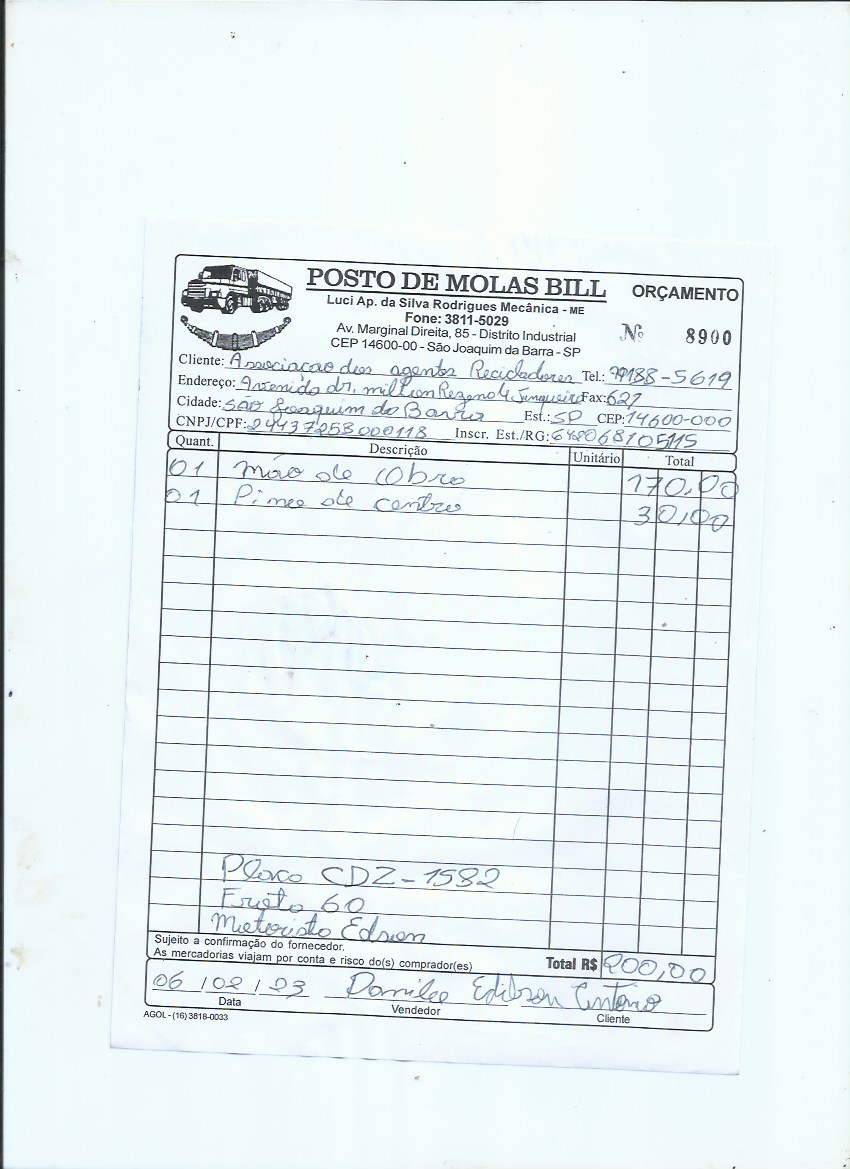 POSTO DE MOLAS BILL ORÇAMENTO
Luci Ap. da Silva Rodrigues Mecânica - ME
Fone: 3811-5029
Av. Marginal Direita, 85 - Distrito Industrial
CEP 14600-00 - São Joaquim da Barra - SP
Nº 8900
Cliente: Associacao dos agentes Recicladores Tel.: 99188-5619
Endereço: Avenida dr. milton Rezende Junqueira Fax: 627
Cidade: são Joaquim da Barra Est.: SP CEP: 14600-000
CNPJ/CPF: 24437258000118 Inscr. Est./RG: 648068105115
Quant. Descrição Unitário Total
01 mão de Obra 170,00
01 Pino de centro 30,00
Placa CDZ-1582
Frota 60
Motorista Edson
Sujeito a confirmação do fornecedor.
As mercadorias viajam por conta e risco do(s) comprador(es) Total R$ 200,00
06 / 02 / 23 Danilo Edilson Antonio
Data Vendedor Cliente
AGOL - (16) 3818-0033